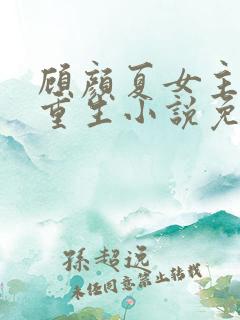 顾颜夏女主
重生小说免
孫超远
未经同意禁止转载